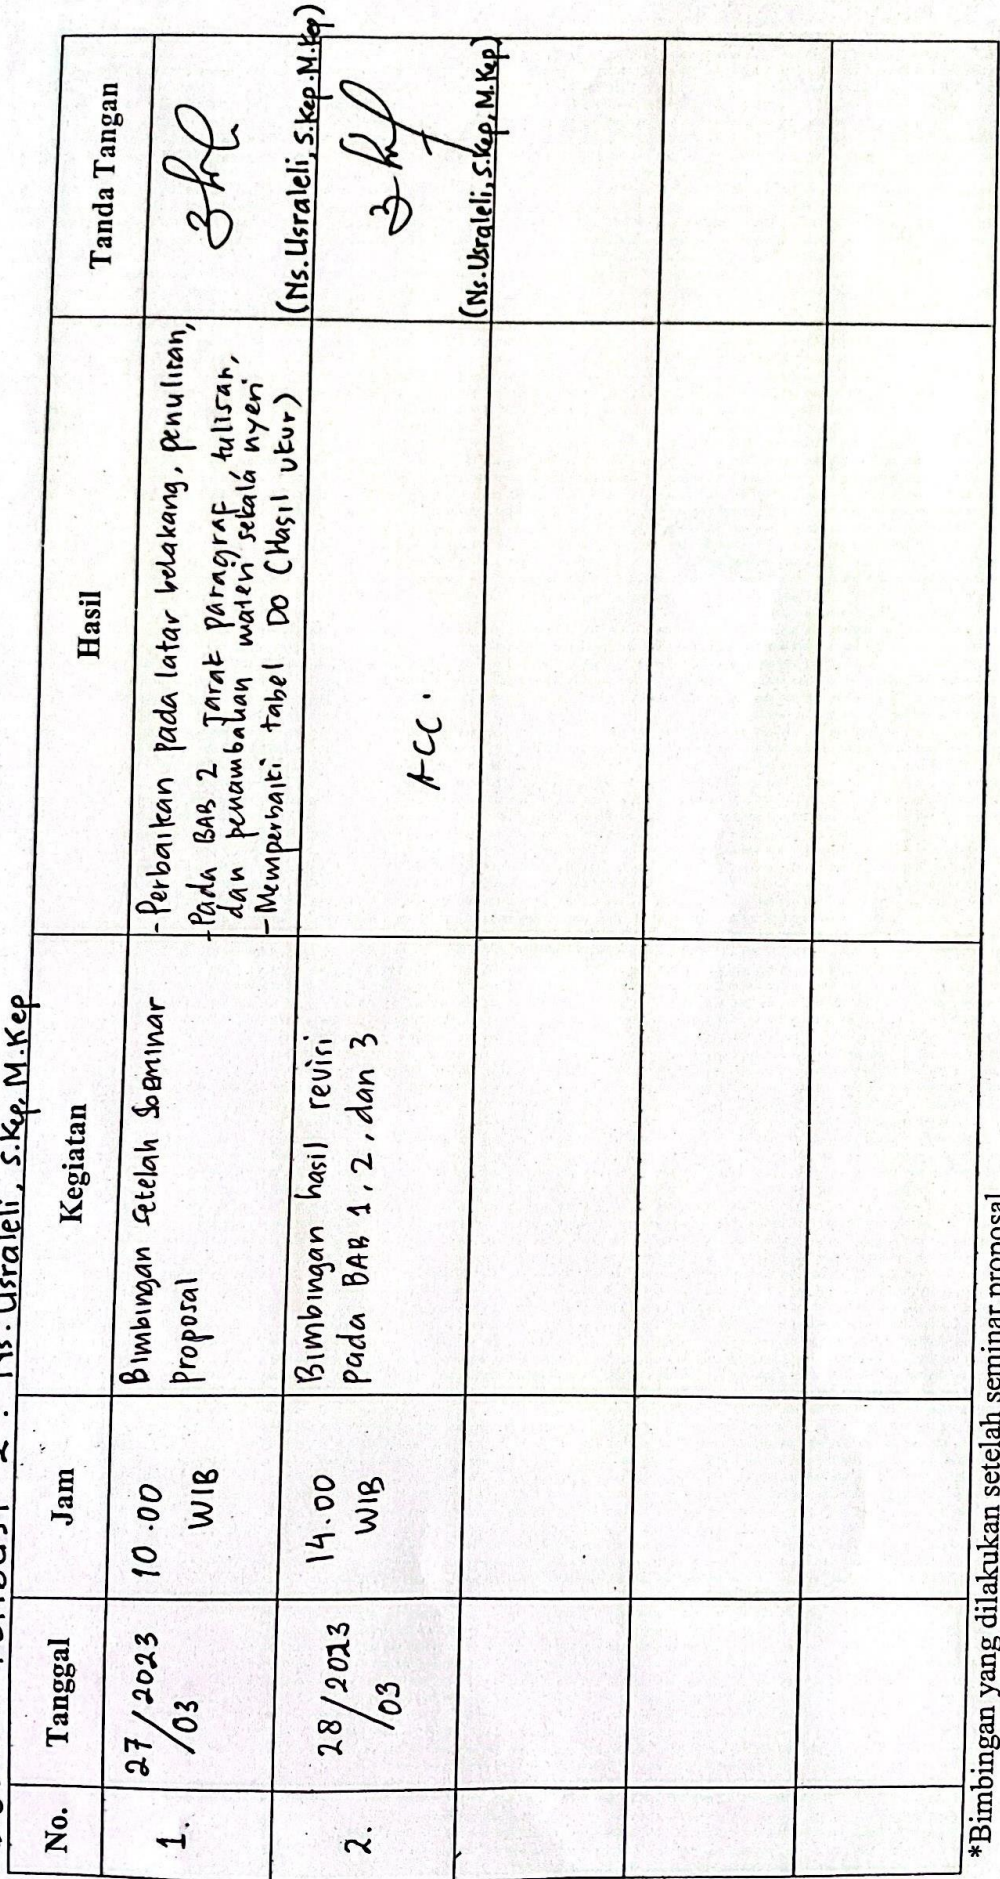 2. Ns. Usraleli, S.Kep, M.Kep
No. Tanggal Jam Kegiatan Hasil Tanda Tangan
1. 27/03/2023 10.00 WIB
Bimbingan setelah Seminar
Proposal
- Perbaikan pada latar belakang, penulisan,
- Pada BAB 2 Jarak paragraf tulisan,
dan penambahan materi sekala nyeri
- Memperbaiki tabel DO (Hasil ukur)
(Ns. Usraleli, S.Kep. M.Kep)
2. 28/03/2023 14.00 WIB
Bimbingan hasil revisi
pada BAB 1, 2, dan 3
ACC.
(Ns. Usraleli, S.Kep, M.Kep)
*Bimbingan yang dilakukan setelah seminar proposal